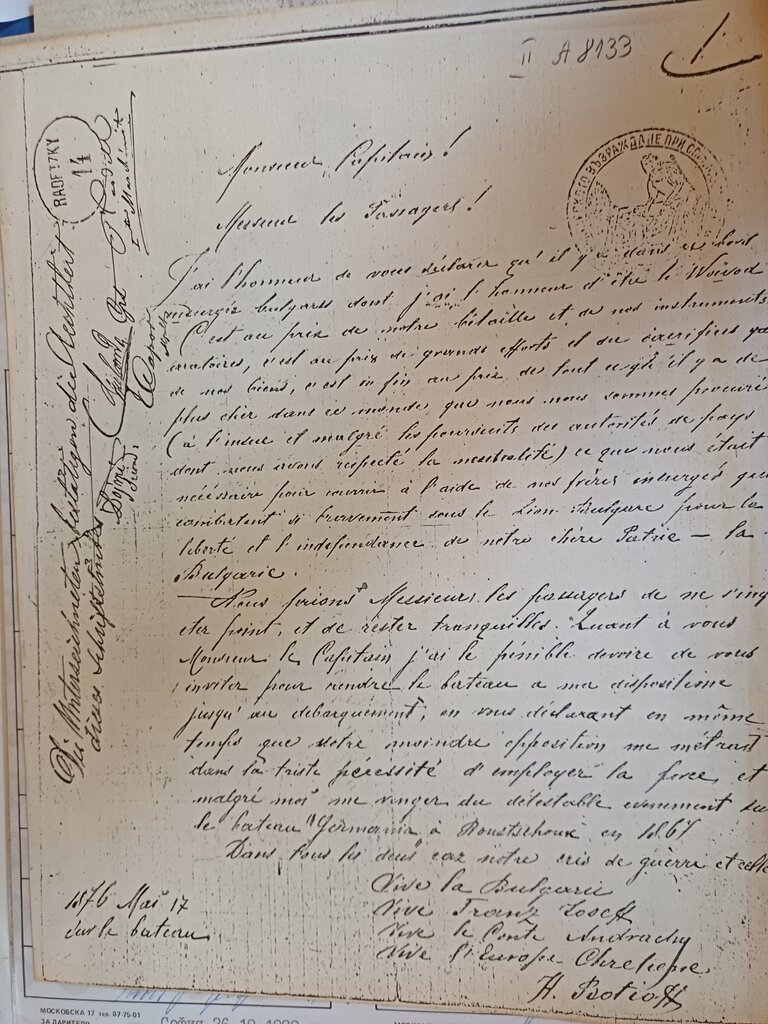 II A 8133
1.
Monsieur Capitain!
Messieurs les Passagers!
J'ai l'honneur de vous déclarer qu'il y a dans ce
insurgés bulgares dont j'ai l'honneur d'être le Woïvod
C'est au prix de notre bétaille et de nos instruments
aratoires, c'est au prix de grands efforts et du sacrifices
de nos biens, c'est in fin au prix de tout ce qu'il y a de
plus cher dans ce monde, que nous nous sommes procuré
(à l'insue et malgré les poursuits des autorités de pays
dont nous avons respecté la neutralité) ce que nous était
nécéssaire pour courrir à l'aide de nos frères insurgés qui
combatent si bravement sous le Lion Bulgare pour la
liberté et l'independance de notre chère Patrie — la
Bulgarie.
Nous prions Messieurs les passagers de ne s'inq
éter point, et de réster tranquilles. Quant à vous
Monsieur le Capitain j'ai le pénible devoire de vous
inviter pour rendre le bateau a ma dispositione
jusqu'au debarquement, en vous déclarant en même
temps que votre moindre opposition me métrait
dans la triste nécéssité d'employer la force et
malgré moi me venger du détestable evenement su
le bateau "Germania à Roustschouk en 1867
Dans tous les deus caz notre cris de guerre et celle
Vive la Bulgarie
Vive Franz Joseff
Vive le Conte Andrachy
Vive l'Europe Chretiene
H. Botioff
1876 Mai 17
sur le bateau
RADETZKY
14
Die Unterzeichneten bestätigen die Aechtheit
dieses Schriftstückes
ВЪЗРАЖДАНЕ ПРИ
МОСКОВСКА 17 тел. 87-75-01
ЗА ДАРИТЕЛЯ